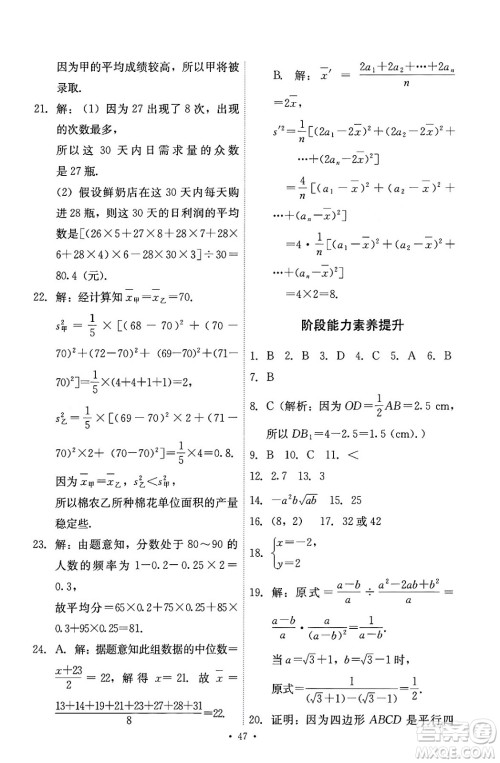 因为甲的平均成绩较高，所以甲将被
录取.
21. 解：（1）因为 27 出现了 8 次，出现
的次数最多，
所以这 30 天内日需求量的众数
是 27 瓶.
（2）假设鲜奶店在这 30 天内每天购
进 28 瓶，则这 30 天的日利润的平均
数是[(26×5+27×8+28×7+28×
6+28×4)×5-28×3×30]÷30=
80.4 (元).
22. 解：经计算知 x̄甲=x̄乙=70.
s²甲 = 1/5 ×[(68-70)²+(70-
70)²+(72-70)²+(69-70)²+(71-
70)²]=1/5(4+4+1+1)=2.
s²乙 = 1/5 ×[(69-70)²+(71-
70)²+(69-70)²+(71-70)²+(70-
70)²]=1/5×(1+1+1+1)=0.8.
因为 x̄甲=x̄乙，s²甲>s²乙，
所以棉农乙所种棉花单位面积的产量
稳定些.
23. 解：由题意知，分数处于 80～90 的
人数的频率为 1-0.2-0.25-0.25=
0.3，
故平均分=65×0.2+75×0.25+85×
0.3+95×0.25=81.
24. A. 解：据题意知此组数据的中位数=
(x+23)/2 = 22，x=21，平均数=
(13+14+19+x+23+27+28+31)/8=22.
B. 解：x̄′ = (2a₁+2a₂+…+2aₙ)/n
=2x̄，
s′²=1/n[(2a₁-2x̄)²+(2a₂-2x̄)²+
…+(2aₙ-2x̄)²]
=4/n[(a₁-x̄)²+(a₂-x̄)²+
…+(aₙ-x̄)²]
=4·1/n[(a₁-x̄)²+(a₂-x̄)²+
…+(aₙ-x̄)²]
=4s².
阶段能力素养提升
1. B 2. B 3. D 4. C 5. A 6. B
7. B
8. C (解析：因为 OD=1/2AB=2.5 cm，
所以 DB₁=4-2.5=1.5 (cm).)
9. B 10. C 11. <
12. 2.7 13. 3
14. -a²b√ab 15. 25
16. (8，2) 17. 32 或 42
18. {x=-2
y=2
19. 解：原式=(a-b)/a÷(a²-2ab+b²)/a
=(a-b)/a·a/(a-b)²=1/(a-b).
当 a=1+√3，b=1-√3时，
原式=1/((√3+1)-(1-√3))=√3/6.
20. 证明：因为四边形 ABCD 是平行四
· 47 ·
作业帮答案圈
MXQE.COM